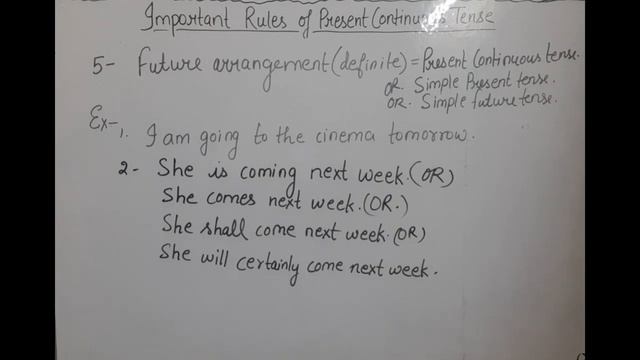 Important Rules of Present Continuous Tense
5- Future arrangement (definite) = Present Continuous tense.
OR. Simple Present tense.
OR. Simple future tense.
Ex-, 1. I am going to the cinema tomorrow.
2- She is coming next week. (OR)
She comes next week. (OR.)
She shall come next week. (OR)
She will certainly come next week.